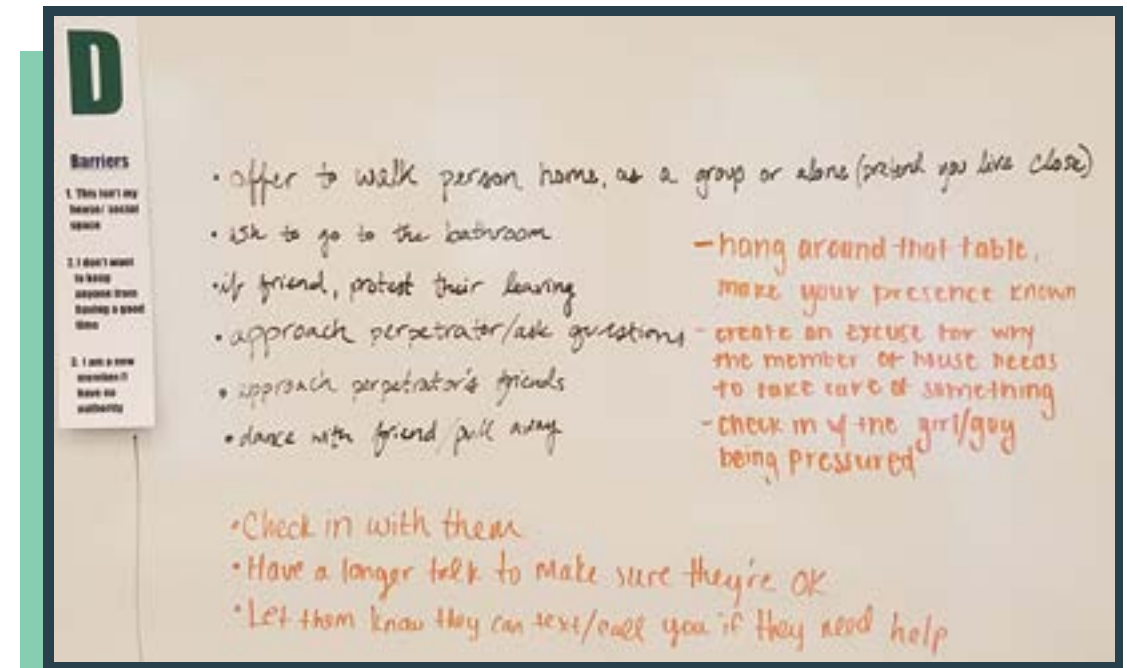 D
Barriers
1. This isn't my
house/ social
space
2. I don't want
to keep
anyone from
having a good
time
3. I am a new
member/I
have no
authority
• offer to walk person home, as a group or alone (pretend you live close)
• ask to go to the bathroom
• if friend, protest their leaving
• approach perpetrator/ask questions
• approach perpetrator's friends
• dance with friend/pull away
- hang around that table,
make your presence known
- create an excuse for why
the member of house needs
to take care of something
- check in w/ the girl/guy
being pressured
• Check in with them
• Have a longer talk to make sure they're OK
• Let them know they can text/call you if they need help